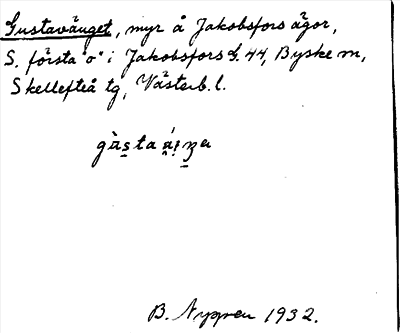 Gustavänget, myr å Jakobsfors ägor,
S. första "o" i Jakobsfors G. 44, Byske sn,
Skellefteå tg, Västerb. l.
B. Nygren 1932.